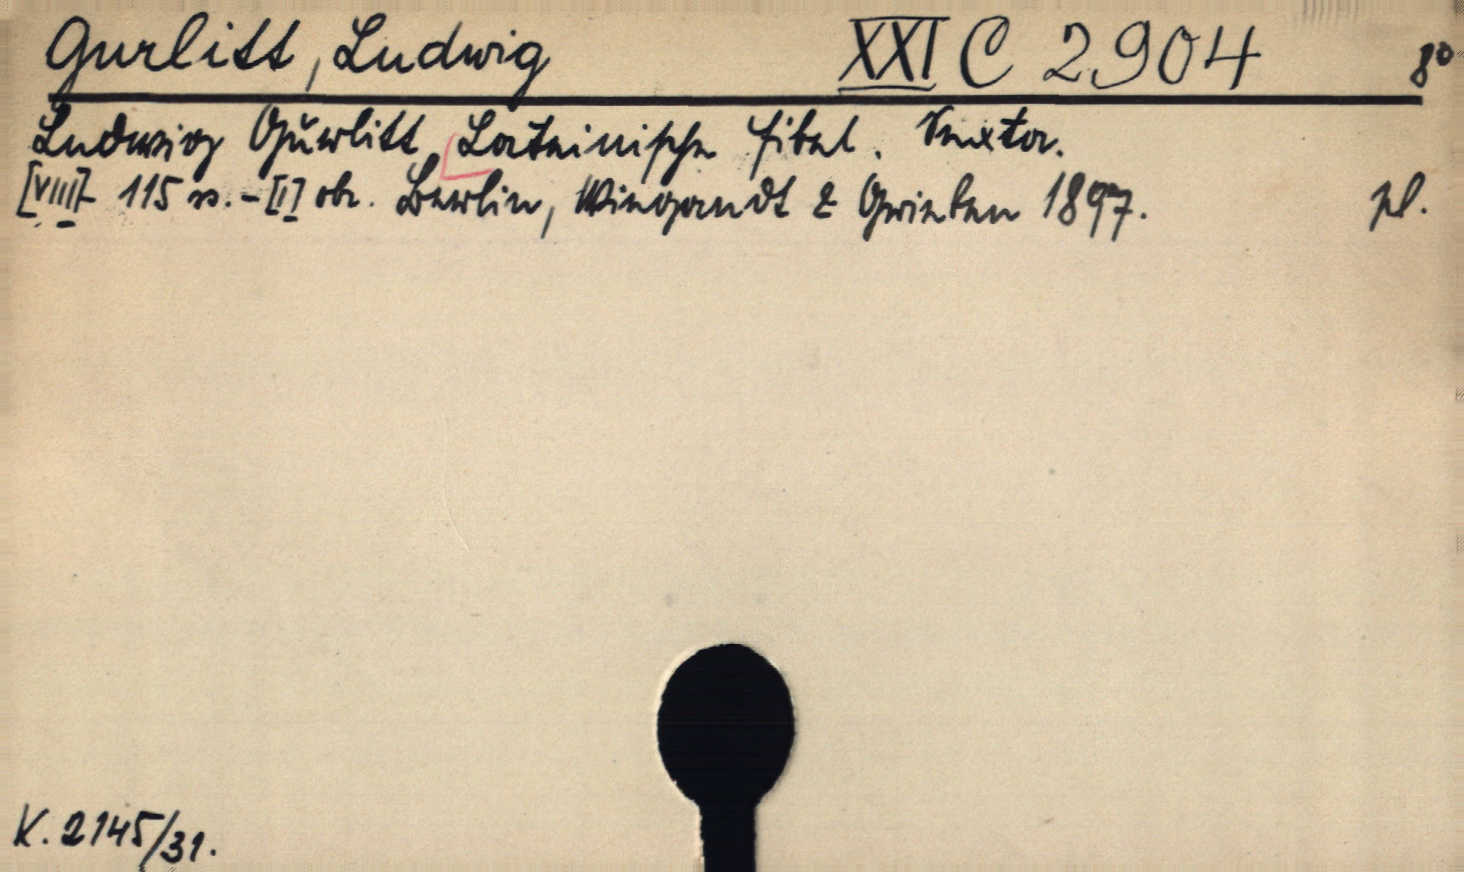 Gurlitt, Ludwig XXI C 2904 8°
Ludwig Gurlitt, Lateinische Fibel. Sexta.
[VIII]- 115 s. - [I] obr. Berlin, Wiegandt & Grieben 1897. pl.
K. 2145/31.